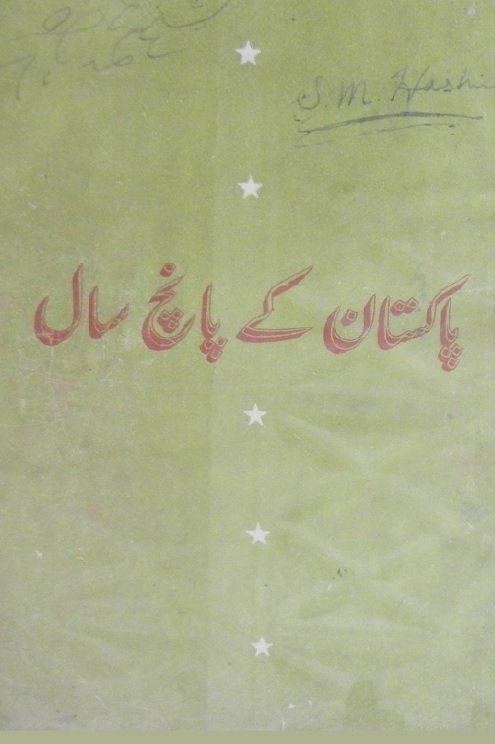 S. M. Hashi
پاکستان کے پانچ سال